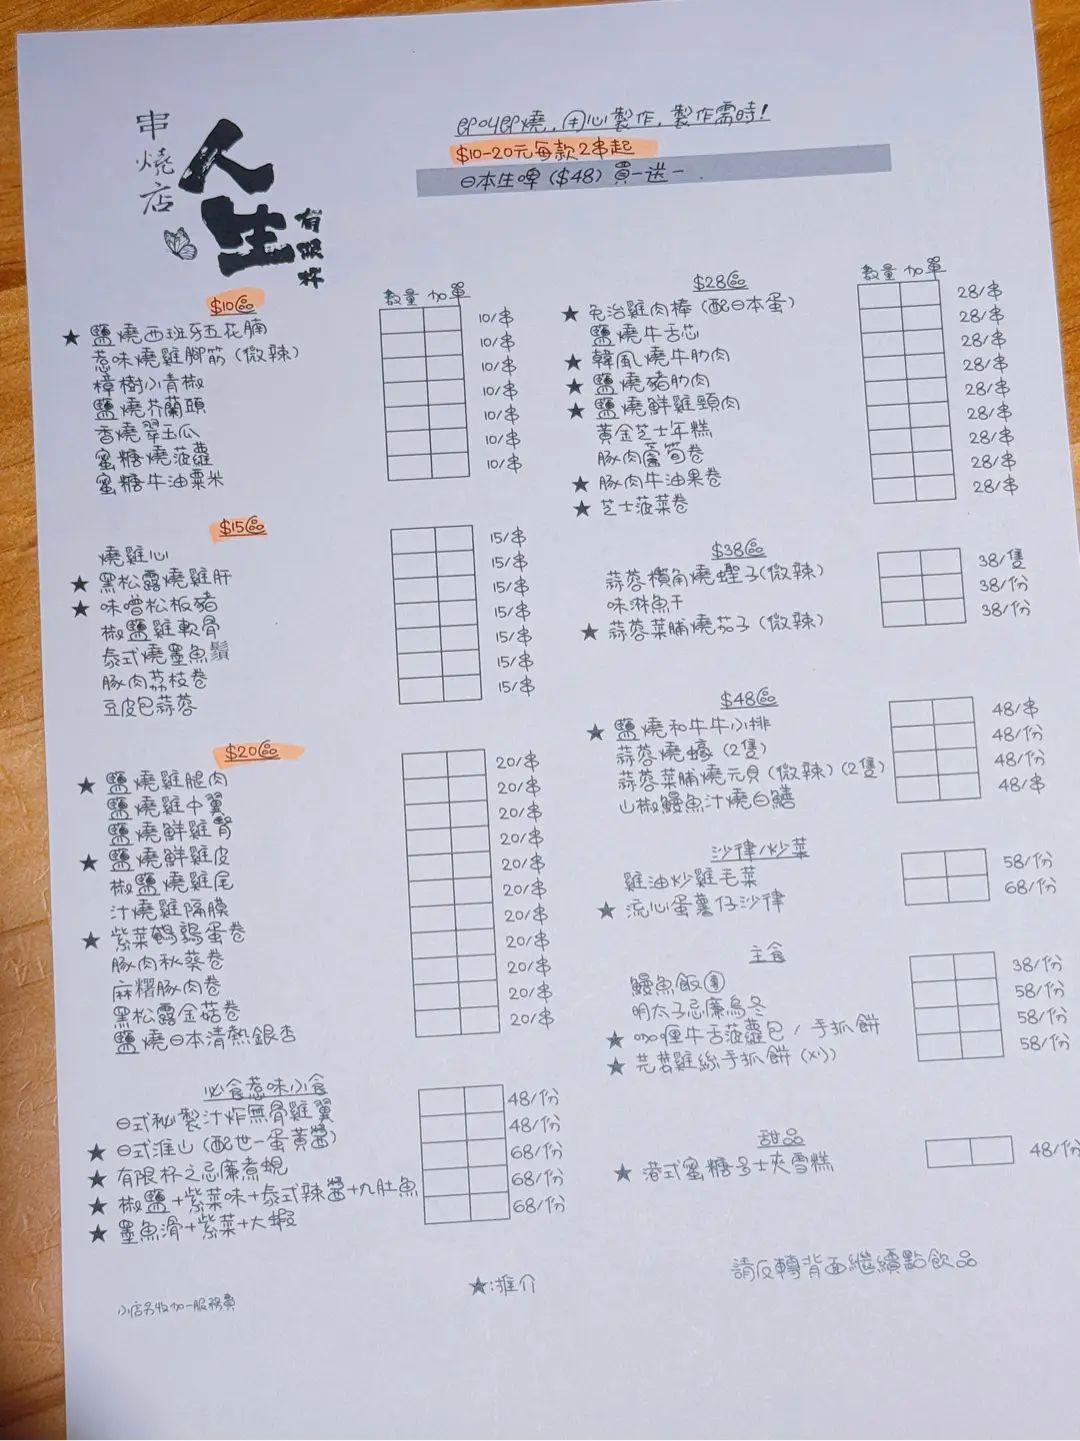 串燒店
人生
有限杯
即叫即燒,用心製作,製作需時!
$10-20元每款2串起
日本生啤($48)買一送一.
$10區
數量 加單
★ 鹽燒西班牙五花腩 10/串
惹味燒雞腳筋(微辣) 10/串
樟樹小青椒 10/串
鹽燒芥蘭頭 10/串
香燒翠玉瓜 10/串
蜜糖燒菠蘿 10/串
蜜糖牛油粟米 10/串
$15區
燒雞心 15/串
★ 黑松露燒雞肝 15/串
★ 味噌松板豬 15/串
椒鹽雞軟骨 15/串
泰式燒墨魚鬚 15/串
豚肉荔枝卷 15/串
豆皮包蒜蓉 15/串
$20區
★ 鹽燒雞腿肉 20/串
鹽燒雞中翼 20/串
鹽燒鮮雞腎 20/串
★ 鹽燒鮮雞皮 20/串
椒鹽燒雞尾 20/串
汁燒雞隔膜 20/串
★ 紫菜鵪鶉蛋卷 20/串
豚肉秋葵卷 20/串
麻糬豚肉卷 20/串
黑松露金菇卷 20/串
鹽燒日本清熱銀杏 20/串
必食惹味小食
日式秘製汁炸無骨雞翼 48/份
★ 日式淮山(配世一蛋黃醬) 48/份
★ 有限杯之忌廉煮蜆 68/份
★ 椒鹽+紫菜味+泰式辣醬+九肚魚 68/份
★ 墨魚滑+紫菜+大蝦 68/份
小店另收加一服務費
$28區
數量 加單
★ 免治雞肉棒(配日本蛋) 28/串
鹽燒牛舌芯 28/串
★ 韓風燒牛肋肉 28/串
★ 鹽燒豬肋肉 28/串
★ 鹽燒鮮雞頸肉 28/串
黃金芝士年糕 28/串
豚肉露筍卷 28/串
★ 豚肉牛油果卷 28/串
★ 芝士菠菜卷 28/串
$38區
蒜蓉欖角燒蟶子(微辣) 38/隻
味淋魚干 38/份
★ 蒜蓉菜脯燒茄子(微辣) 38/份
$48區
★ 鹽燒和牛牛小排 48/串
蒜蓉燒蠔(2隻) 48/份
蒜蓉菜脯燒元貝(微辣)(2隻) 48/份
山椒鰻魚汁燒白鱔 48/串
沙律/炒菜
雞油炒雞毛菜 58/份
★ 流心蛋薯仔沙律 68/份
主食
鰻魚飯 38/份
明太子忌廉烏冬 58/份
★ 咖喱牛舌菠蘿包/手抓餅 58/份
★ 芫茜雞絲手抓餅(凍) 58/份
甜品
★ 港式蜜糖多士夾雪糕 48/份
★:推介
請反轉背面繼續點飲品